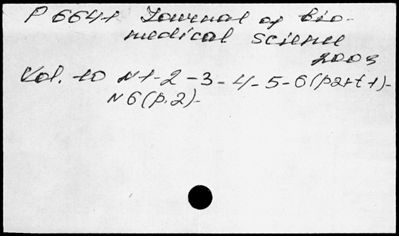 P 6641 Journal of bio-
medical science
2003
Vol. 10 N1-2-3-4-5-6(part1)-
N6(p.2)-